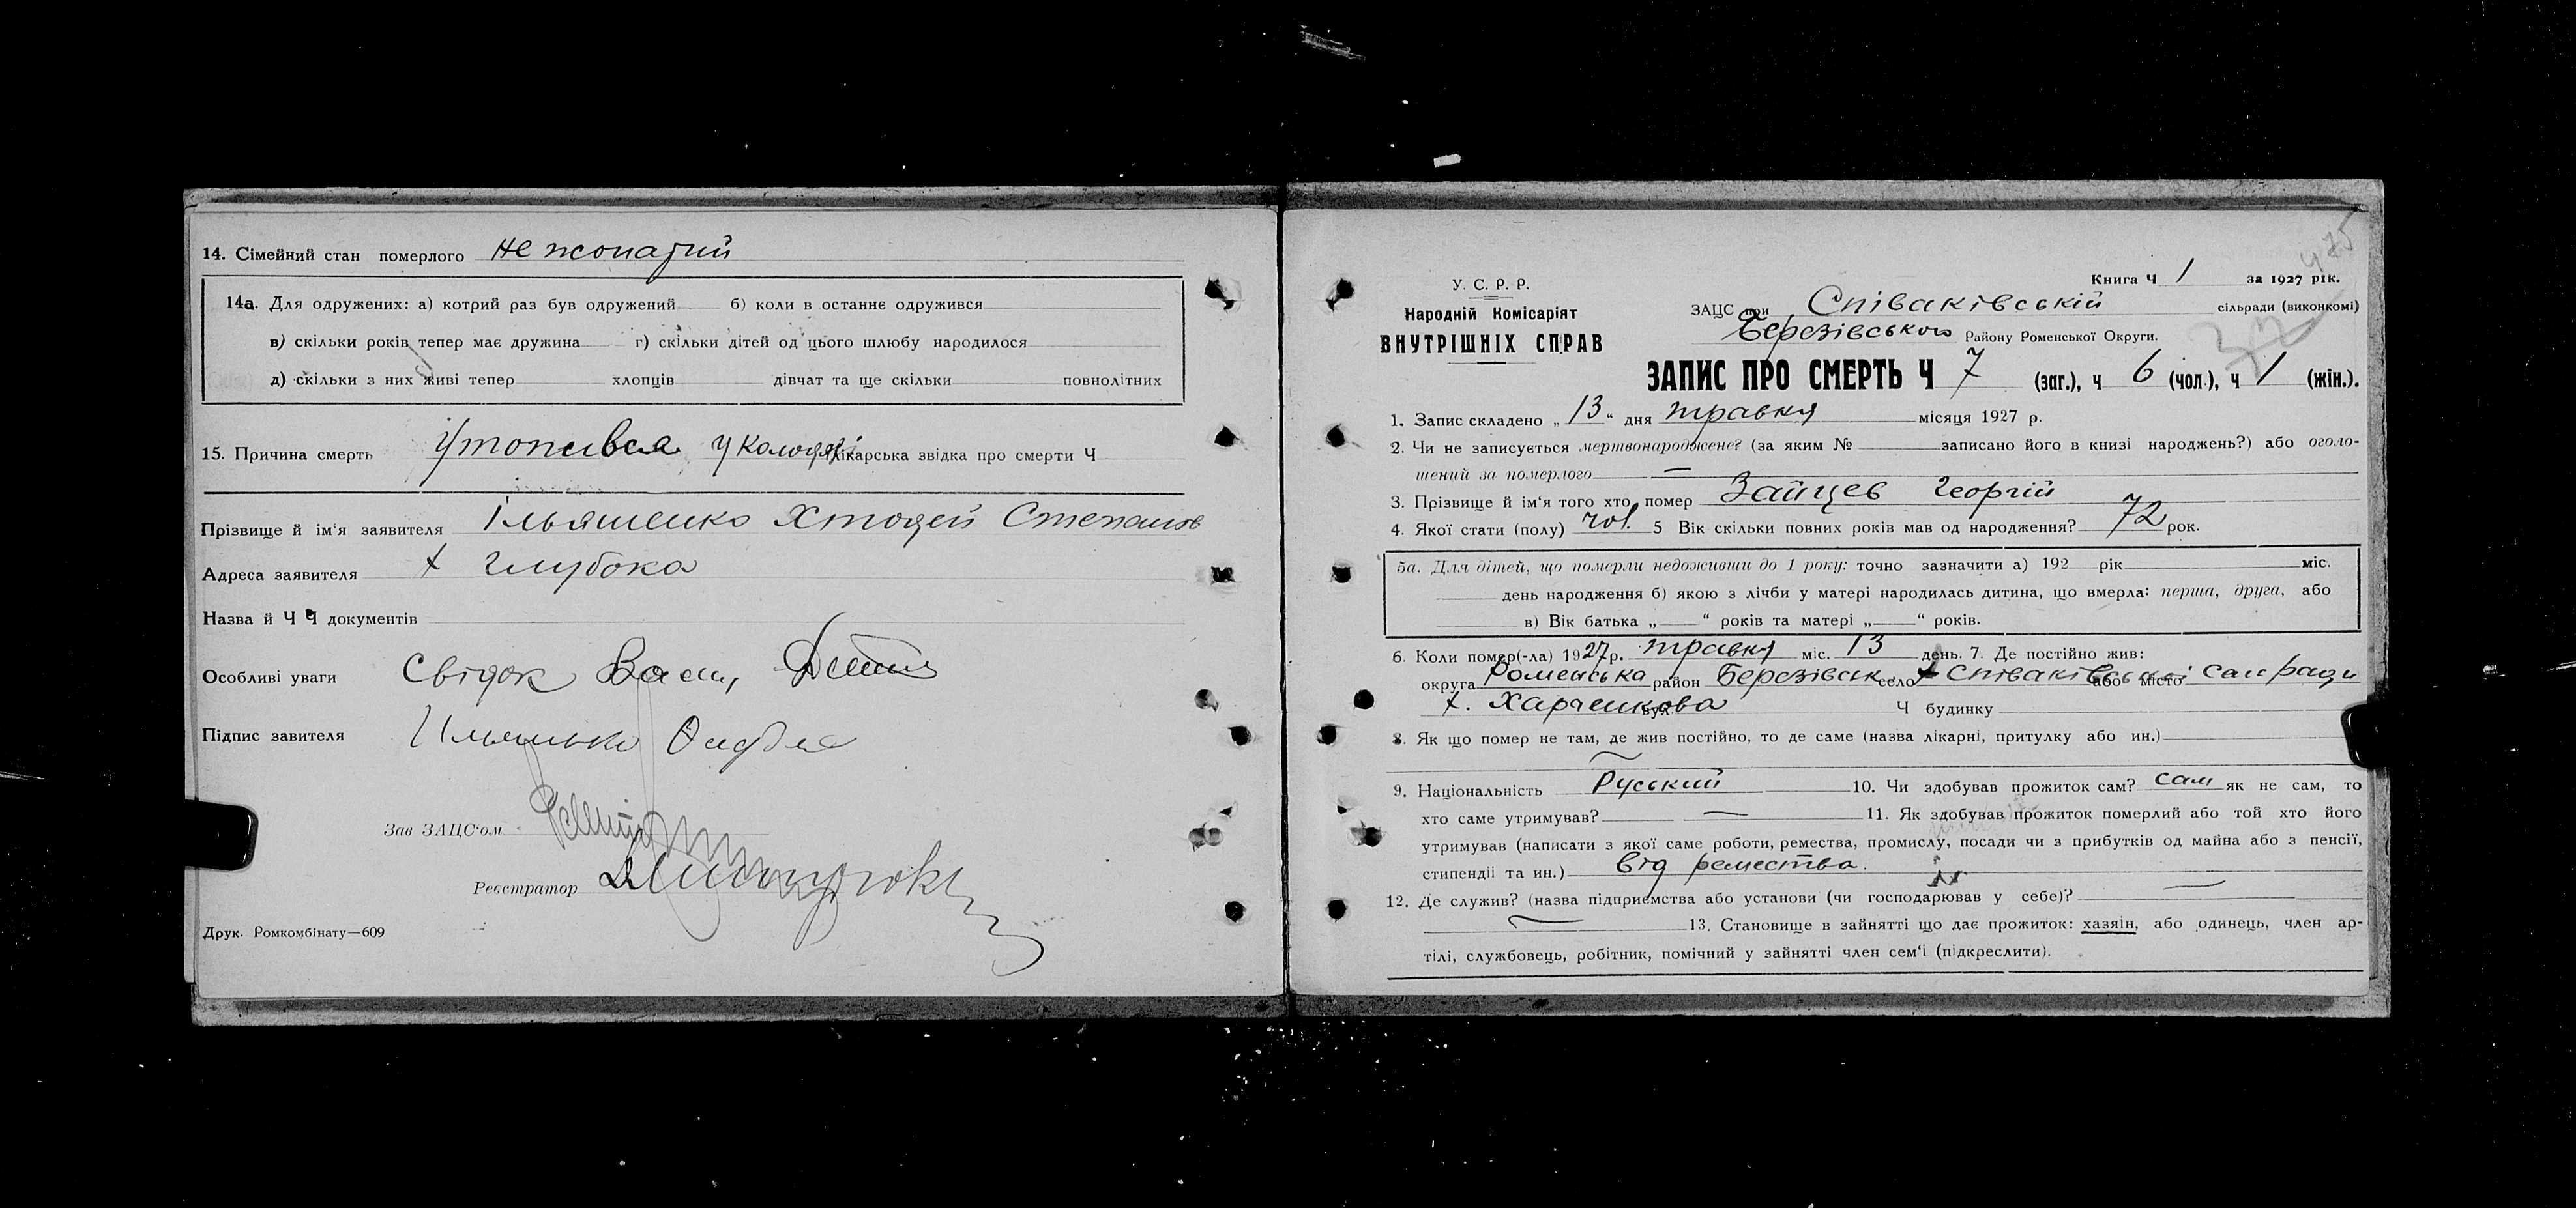 14. Сімейний стан померлого не жонатий
14а. Для одружених: а) котрий раз був одружений б) коли в останнє одружився
в) скільки років тепер має дружина г) скільки дітей од цього шлюбу народилося
д) скільки з них живі тепер хлопців дівчат та ще скільки повнолітних
15. Причина смерть Утопився у колодязі лікарська звідка про смерти Ч
Прізвище й ім'я заявителя Ільяшенко Степанов
Адреса заявителя х Глубока
Назва й Ч Ч документів
Особливі уваги Свідок
Підпис завителя
Зав ЗАЦС'ом
Реєстратор
Друк. Ромкомбінату—609
475
Книга Ч 1 за 1927 рік.
У. С. Р. Р.
Народній Комісаріят
ВНУТРІШНІХ СПРАВ
ЗАЦС при Співаківській сільради (виконкомі)
Березівського Району Роменської Округи.
ЗАПИС ПРО СМЕРТЬ Ч 7 (заг.), ч 6 (чол.), ч 1 (жін.).
1. Запис складено „13“ дня травня місяця 1927 р.
2. Чи не записується мертвонароджене? (за яким № записано його в книзі народжень?) або оголо-
шений за померлого —
3. Прізвище й ім'я того хто помер Зайцев Георгій
4. Якої стати (полу) чол. 5 Вік скільки повних років мав од народження? 72 рок.
5а. Для дітей, що померли недоживши до 1 року: точно зазначити а) 192 рік міс.
день народження б) якою з лічби у матері народилась дитина, що вмерла: перша, друга, або
в) Вік батька „ “ років та матері „ “ років.
6. Коли помер(-ла) 1927 р. травня міс. 13 день. 7. Де постійно жив:
округа Роменська район Березівськ село х Співаківської або місто сільради
х. Харченкова вул. Ч будинку
8. Як що помер не там, де жив постійно, то де саме (назва лікарні, притулку або ин.)
—
9. Національність Руський 10. Чи здобував прожиток сам? сам як не сам, то
хто саме утримував? — 11. Як здобував прожиток померлий або той хто його
утримував (написати з якої саме роботи, ремества, промислу, посади чи з прибутків од майна або з пенсії,
стипендії та ин.) від ремества.
12. Де служив? (назва підприємства або установи (чи господарював у себе)? —
— 13. Становище в зайнятті що дає прожиток: хазяїн, або одинець, член ар-
тілі, службовець, робітник, помічний у зайнятті член сем'ї (підкреслити).